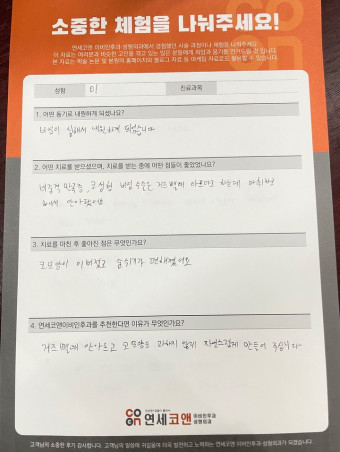 소중한 체험을 나눠주세요!
연세코앤 이비인후과성형외과에서 경험했던 시술 과정이나 체험을 나눠주세요.
이 자료는 여러분과 비슷한 고민을 갖고 있는 많은 분들에게 희망과 용기를 안겨드릴 것 입니다.
본 자료는 학술 논문 및 본원의 홈페이지와 블로그 자료 등 마케팅 자료로도 활용될 수 있습니다.
성함 이 진료과목
1. 어떤 동기로 내원하게 되셨나요?
비염이 심해서 내원하게 되었습니다
2. 어떤 치료를 받으셨으며, 치료를 받는 중에 어떤 점들이 좋았었나요?
비중격 만곡증, 코성형 비염 수술은 거즈뺄때 아프다고 하는데
해서 안아팠어요
3. 치료를 마친 후 좋아진 점은 무엇인가요?
코모양이 이뻐졌고 숨쉬기가 편해졌어요
4. 연세코앤이비인후과를 추천한다면 이유가 무엇인가요?
거즈뺄때 안아프고 코모양도 과하지 않게 자연스럽게 만들어 주십니다
CO&N 연세코앤 이비인후과 성형외과
고객님의 소중한 후기 감사합니다. 고객님의 말씀에 귀기울여 더욱 발전하고 노력하는 연세코앤 이비인후과 성형외과가 되겠습니다.